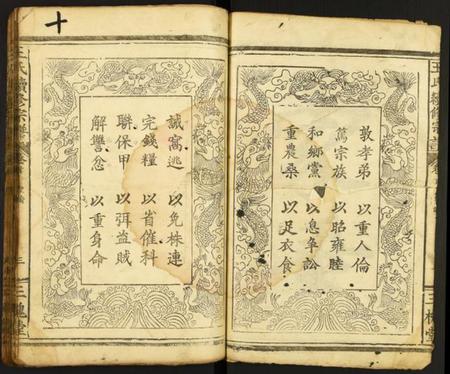 王氏續修宗譜
三槐堂
敦孝弟 以重人倫
篤宗族 以昭雍睦
和鄉黨 以息争訟
重農桑 以足衣食
誡窩逃 以免株連
完錢糧 以省催科
聯保甲 以弭盜賊
解讐忿 以重身命
王氏續修宗譜
三槐堂
十